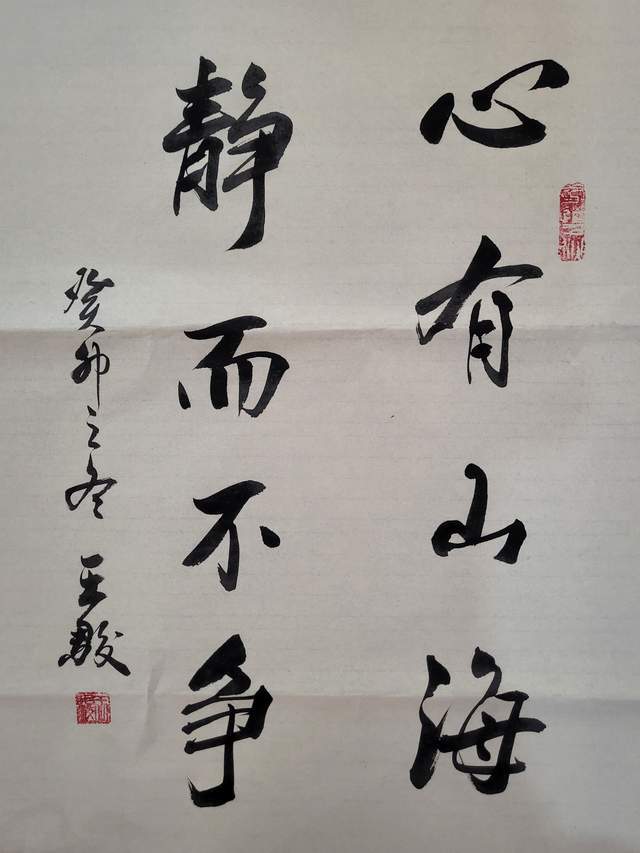 心有山海
静而不争
癸卯之冬 王毅